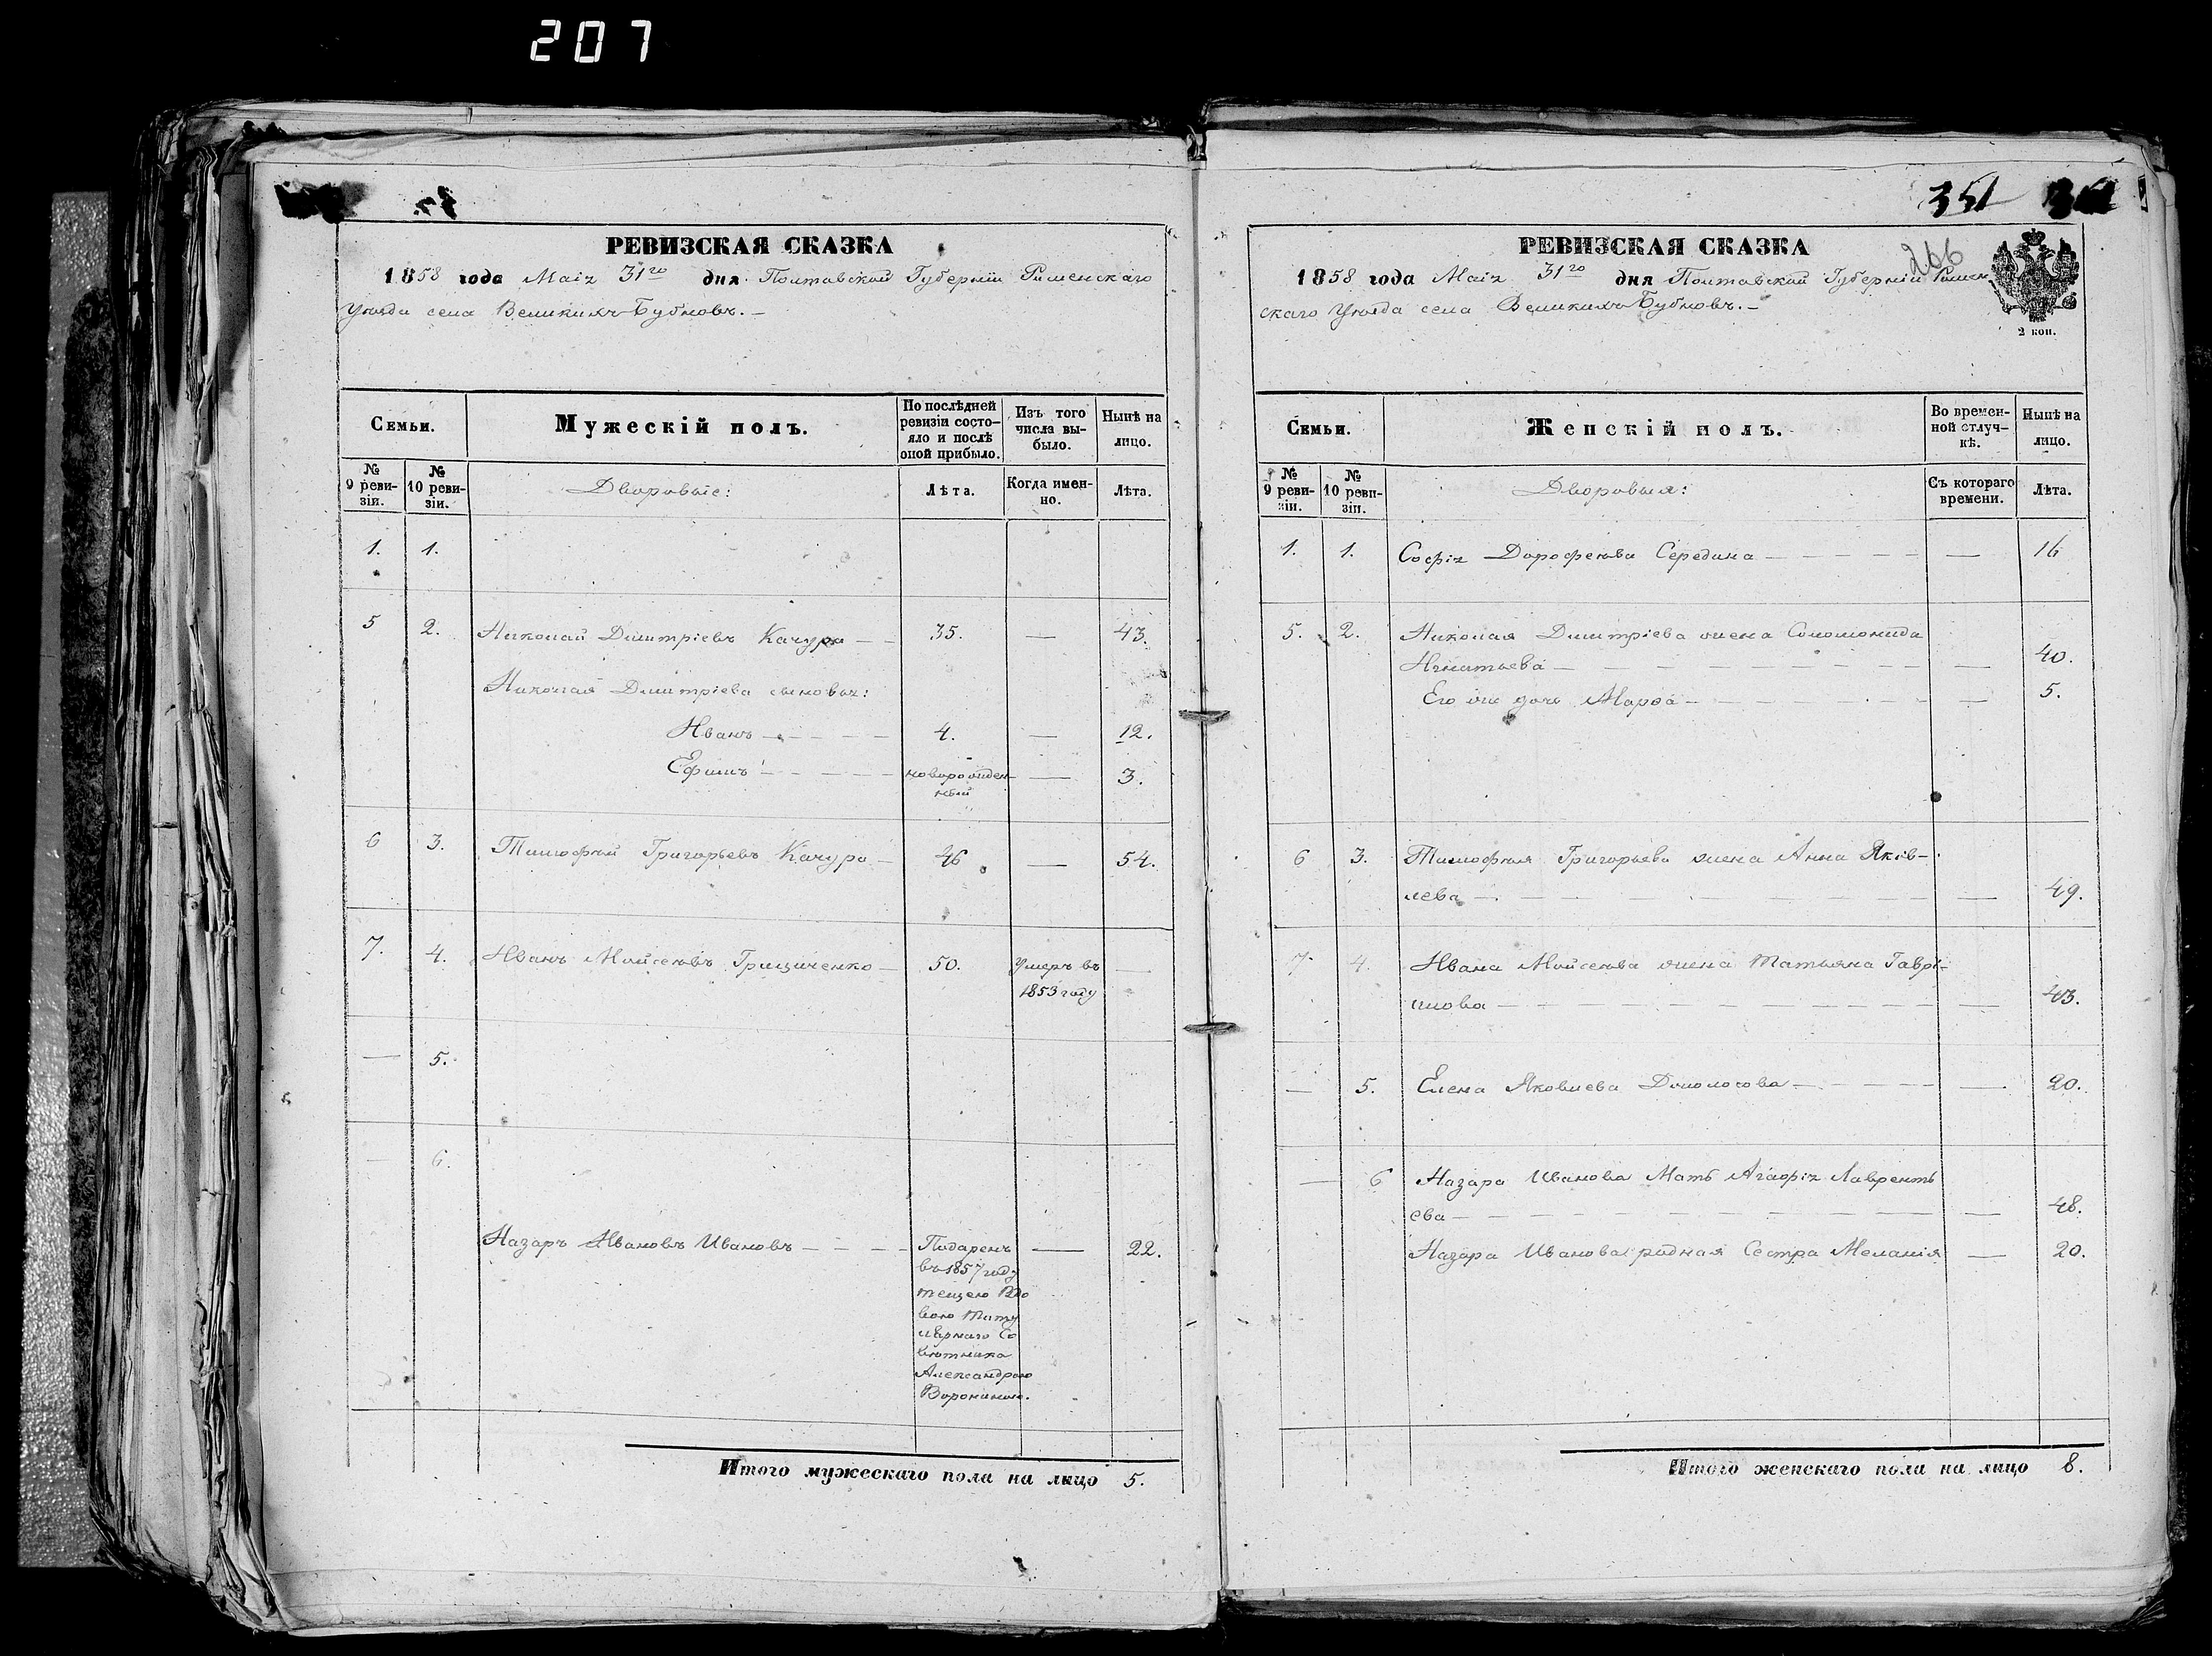 207
РЕВИЗСКАЯ СКАЗКА
1858 года Маія 31го дня Полтавской Губерніи Роменскаго
Уѣзда села Великихъ Бубновъ.
Семьи.
Мужескій полъ.
По послѣдней ревизіи состо-
яло и послѣ
оной прибыло.
Изъ того
числа вы-
было.
Нынѣ на
лицо.
№
9 реви-
зіи.
№
10 реви-
зіи.
Дворовые:
Лѣта.
Когда имен-
но.
Лѣта.
1. 1.
5 2. Николай Димитріевъ Качура 35. — 43.
Николая Дмитріева сыновья:
Иванъ 4. — 12.
Ефимъ новорожден- — 3.
ный
6 3. Тимофей Григорьевъ Качура 46 — 54.
7. 4. Иванъ Мойсеѣвъ Грищиченко 50. Умеръ въ —
1853 году
— 5.
— 6.
Назаръ Ивановъ Ивановъ Подаренъ — 22.
въ 1857 году
тещею Вдо
вою Титу
лярнаго Со
вѣтника
Александрою
Ворониною.
Итого мужескаго пола на лицо 5.
351
266
РЕВИЗСКАЯ СКАЗКА
1858 года Маія 31го дня Полтавской Губерніи Ромен
скаго Уѣзда села Великихъ Бубновъ.
2 коп.
Семьи.
Женскій полъ.
Во времен-
ной отлуч-
кѣ.
Нынѣ на
лицо.
№
9 реви-
зіи.
№
10 реви-
зіи.
Дворовыя:
Съ котораго
времени.
Лѣта.
1. 1. Софія Дорофеѣва Середина — 16
5. 2. Николая Дмитріева жена Соломонида
Игнатьева — 40.
Его же дочь Марѳа — 5.
6 3. Тимофея Григорьева жена Анна Яков-
лева — 49.
7 4. Ивана Мойсеѣва жена Татьяна Гаврі-
лова — 43.
— 5. Елена Яковлева Дололосова — 20.
— 6 Назара Иванова Мать Агафія Лаврентъ
ева — 48.
Назара Иванова родная Сестра Меланія — 20.
Итого женскаго пола на лицо 8.